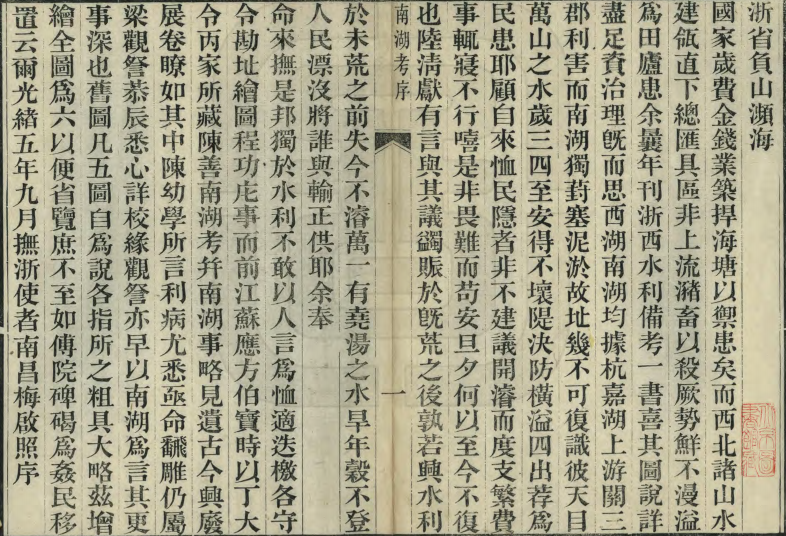 浙省負山瀕海
國家歲費金錢業築捍海塘以禦患矣而西北諸山水
建瓴直下總匯具區非上流瀦畜以殺厥勢鮮不漫溢
爲田廬患余曩年刊浙西水利備考一書喜其圖說詳
盡足資治理旣而思西湖南湖均據杭嘉湖上游關三
郡利害而南湖獨葑塞泥淤故址幾不可復識彼天目
萬山之水歲三四至安得不壞隄決防橫溢四出荐爲
民患耶顧自來恤民隱者非不建議開濬而度支繁費
事輒寢不行嘻是非畏難而苟安旦夕何以至今不復
也陸淸獻有言與其議蠲賑於旣荒之後孰若興水利
南湖考序
一
於未荒之前失今不濬萬一有堯湯之水旱年穀不登
人民漂沒將誰與輸正供耶余奉
命來撫是邦獨於水利不敢以人言爲恤適迭檄各守
令勘址繪圖程功庀事而前江蘇應方伯寶時以丁大
令丙家所藏陳善南湖考幷南湖事略見遺古今興廢
展卷瞭如其中陳幼學所言利病尤悉亟命翻雕仍屬
梁觀詧恭辰悉心詳校緣觀詧亦早以南湖爲言其更
事深也舊圖凡五圖自爲說各指所之粗具大略茲增
繪全圖爲六以便省覽庶不至如傅院碑碣爲姦民移
置云爾光緖五年九月撫浙使者南昌梅啟照序